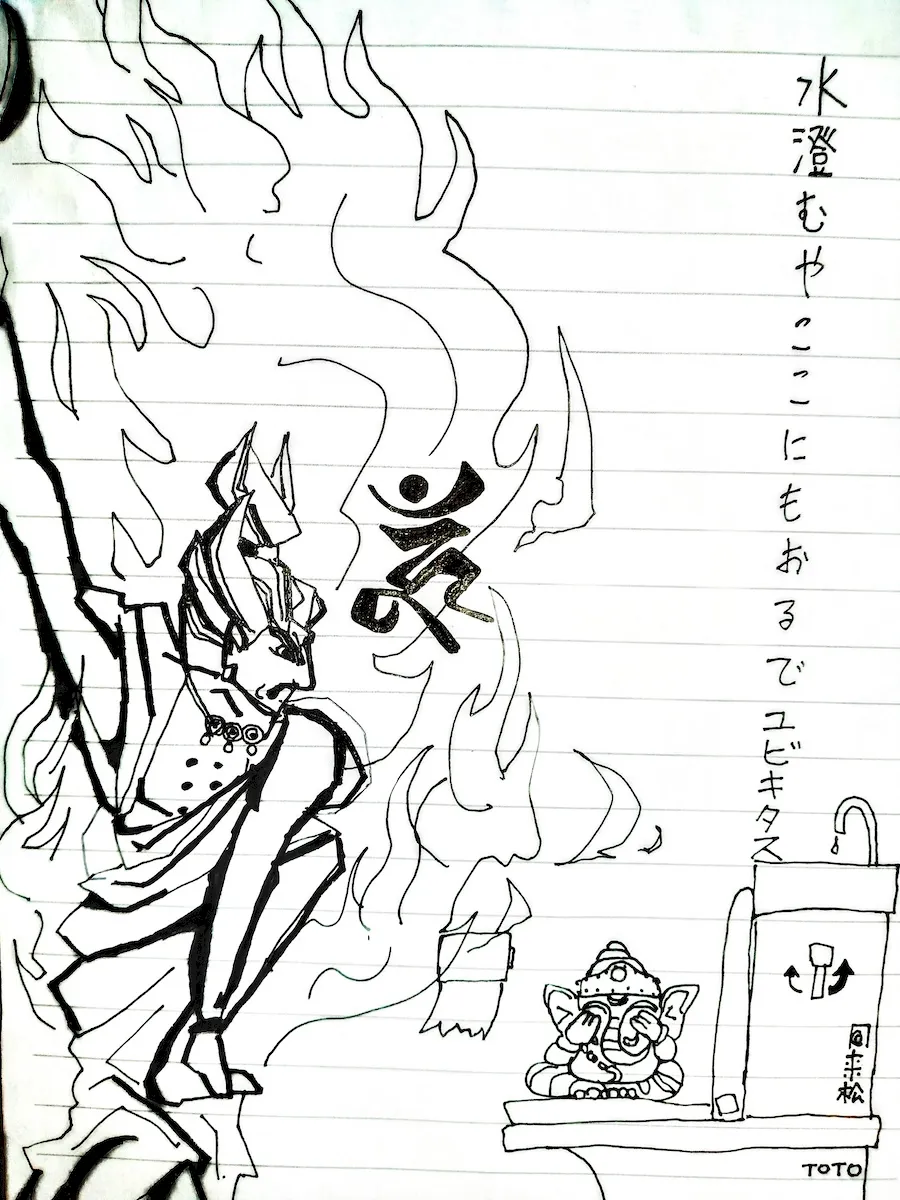 水澄むやここにもおるでユビキタス
𑖮𑖳𑖽
@来松
TOTO